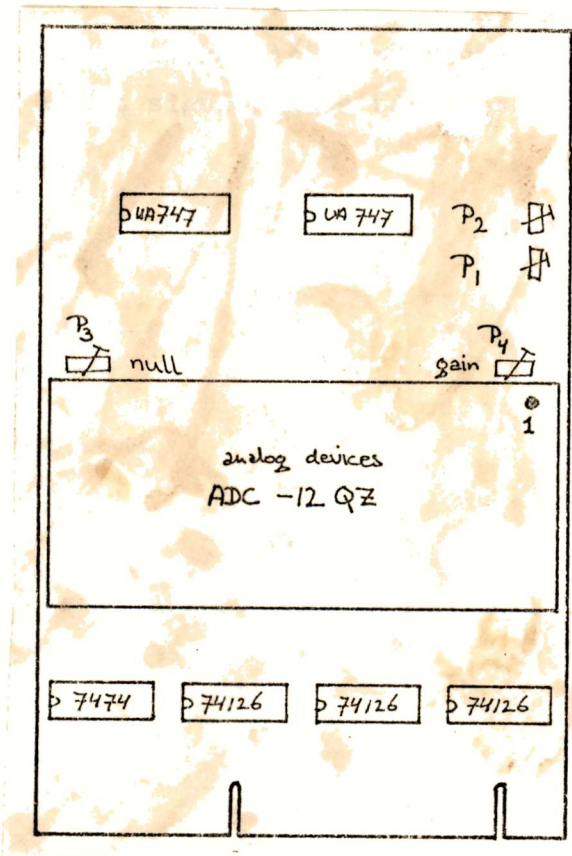 UA747
UA 747
P2
P1
P3
null
P4
gain
1
analog devices
ADC -12 QZ
7474
74126
74126
74126